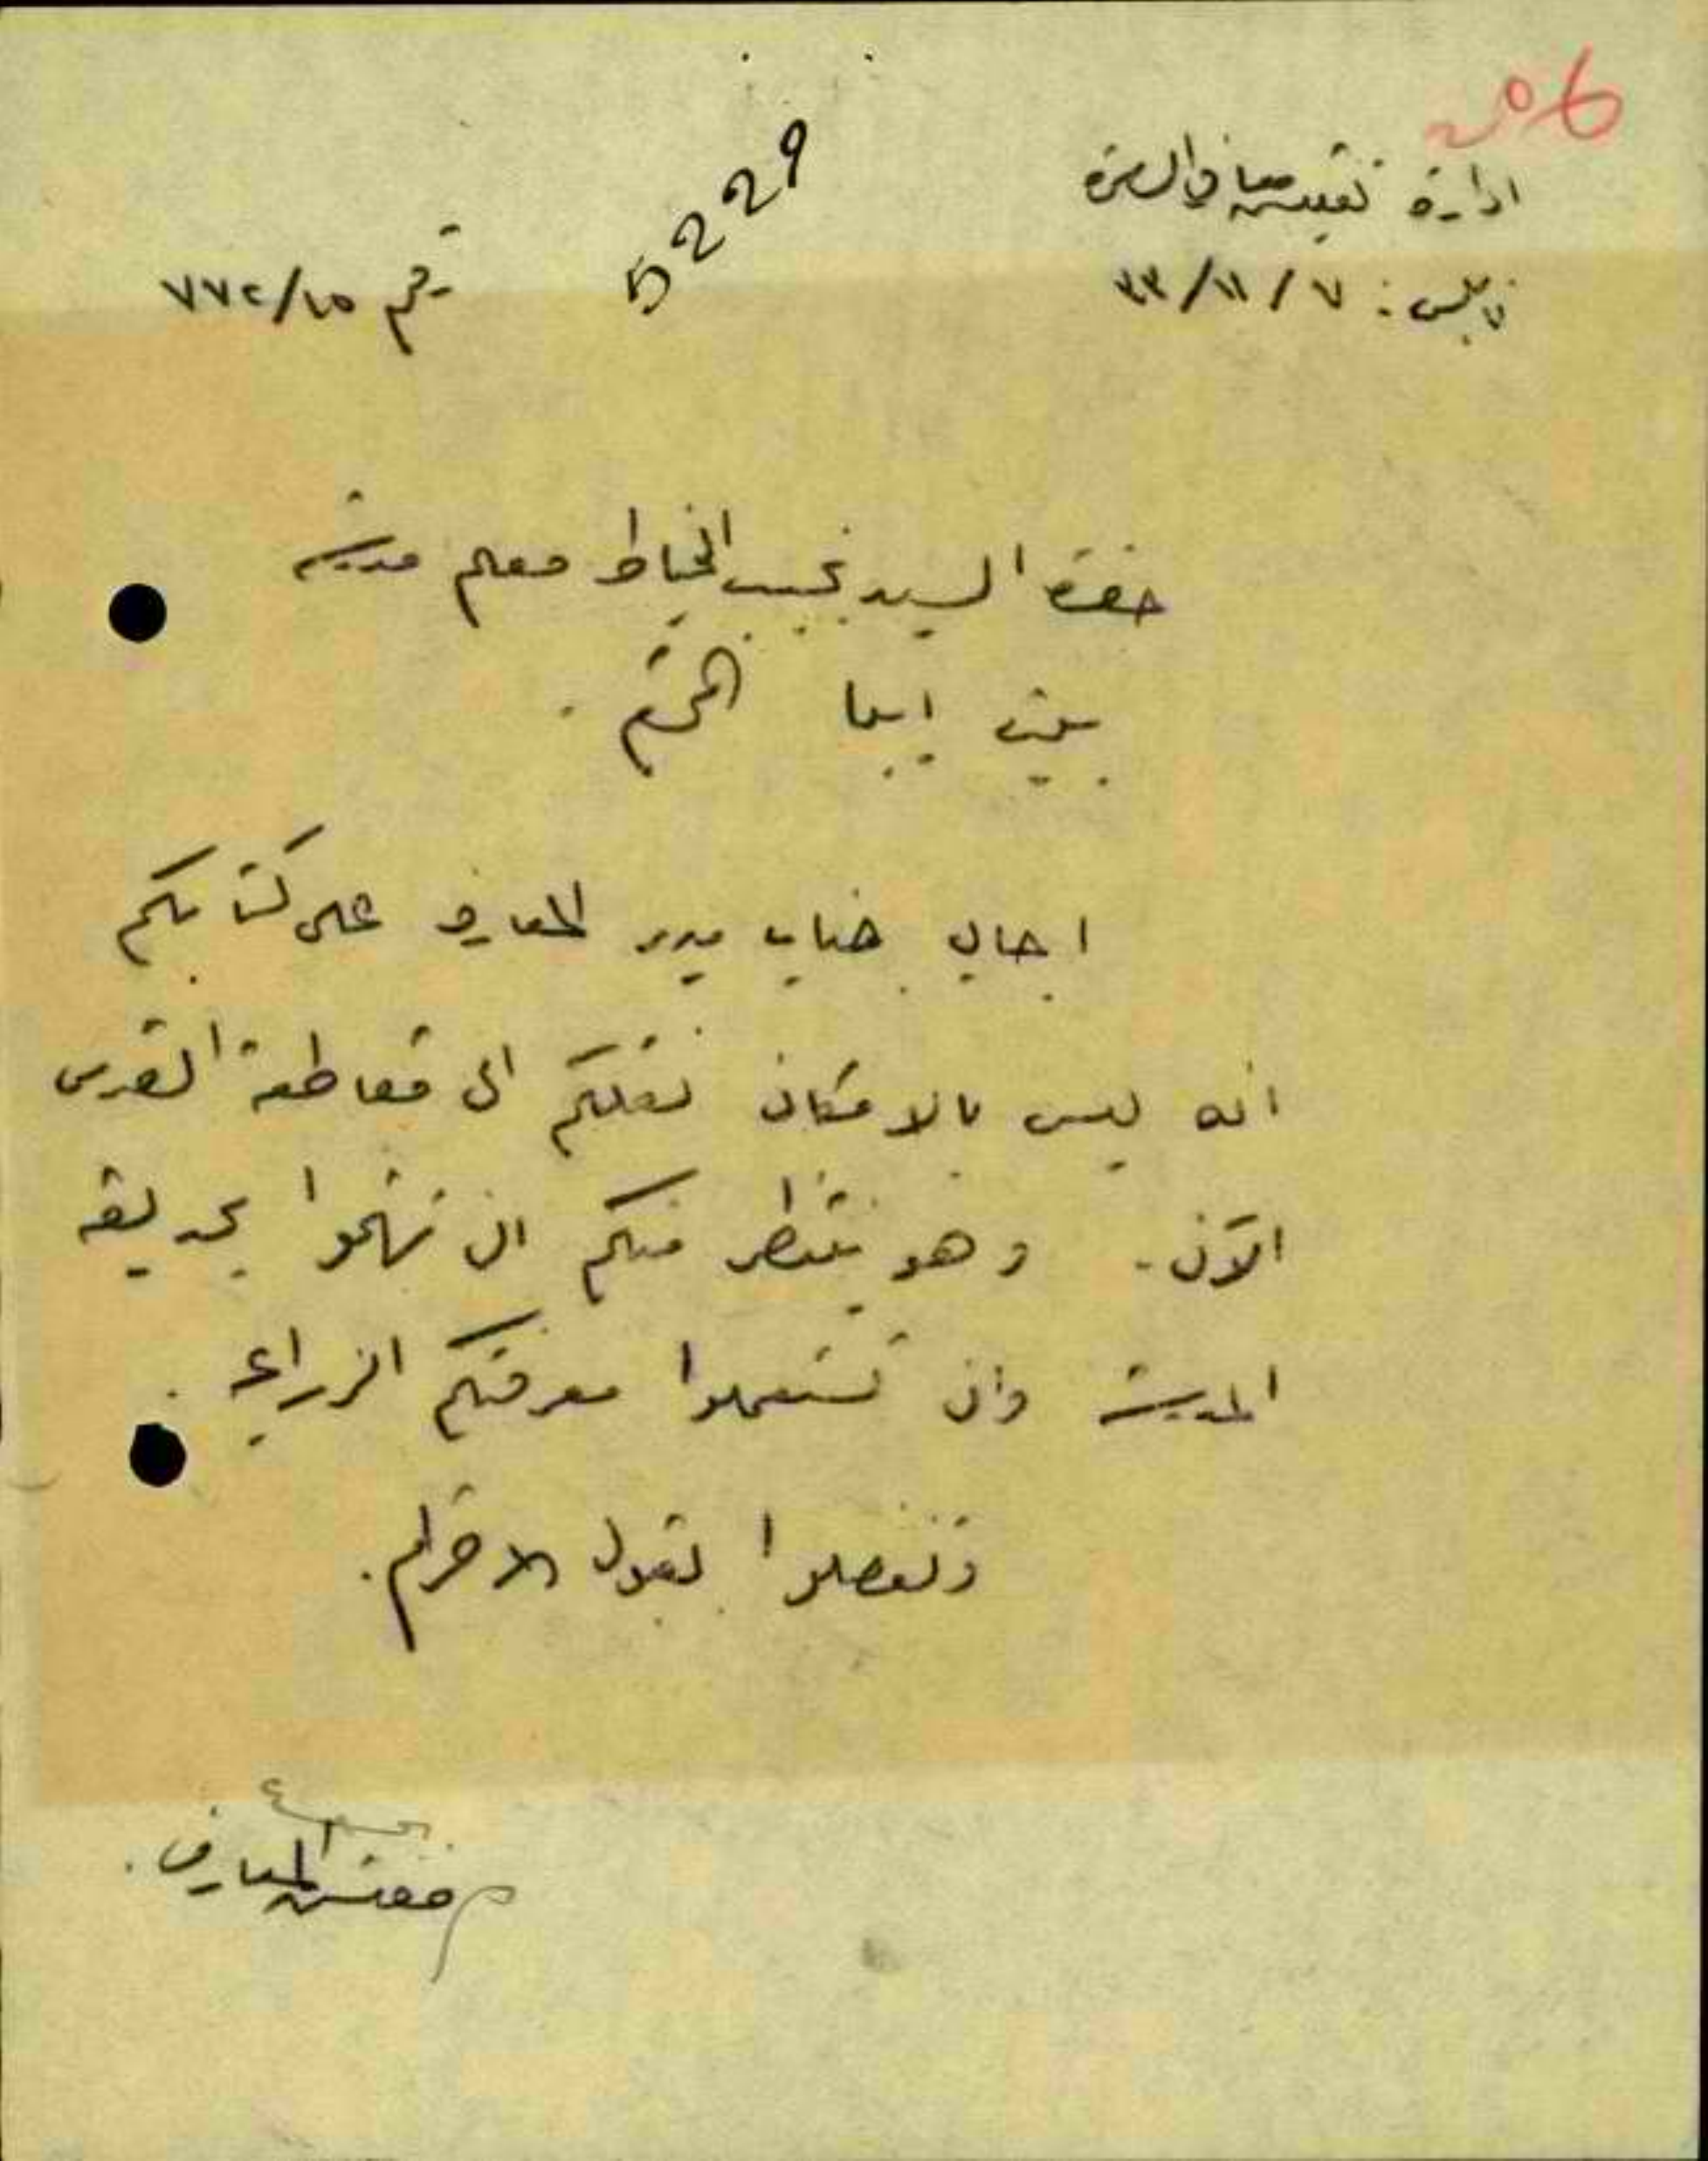 ادارة تفتيش معارف السامرة
نابلس: ٧ / ١١ / ٣٣
رقم ١٥/٧٧٢
5229
حضرة السيد نجيب الخياط معلم مدرسة
بيت ايبا المحترم .
اجاب جناب مدير المعارف على كتابكم
انه ليس بالامكان نقلكم الى مقاطعة القدس
الآن . وهو ينتظر منكم ان تهتموا بحديقة
المدرسة وان تستعملوا معرفتكم الزراعية .
وتفضلوا بقبول الاحترام .
مفتش المعارف .